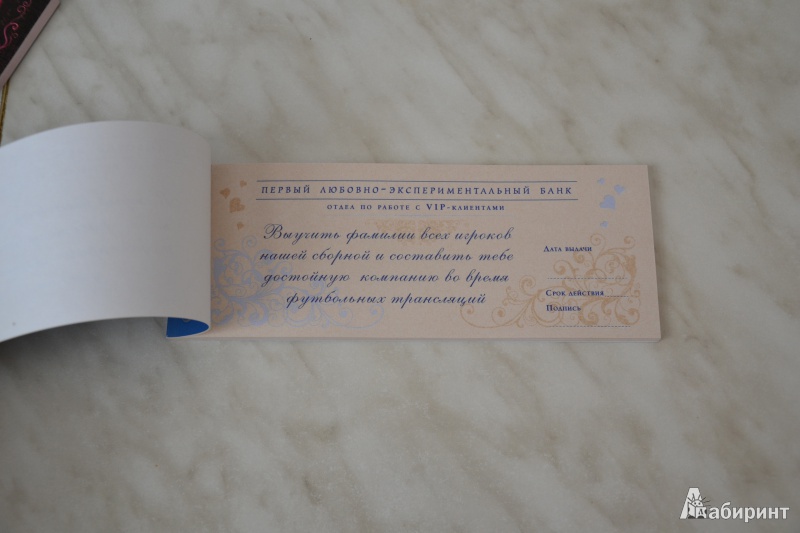 ПЕРВЫЙ ЛЮБОВНО-ЭКСПЕРИМЕНТАЛЬНЫЙ БАНК
ОТДЕЛ ПО РАБОТЕ С VIP-КЛИЕНТАМИ
Выучить фамилии всех игроков
нашей сборной и составить тебе
достойную компанию во время
футбольных трансляций
Дата выдачи
Срок действия
Подпись
Лабиринт